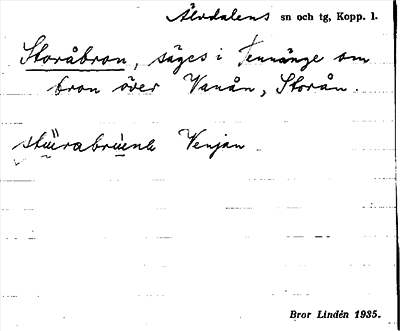 Älvdalens sn och tg, Kopp. l.
Storåbron, säges i Tennänge om
bron över Vanån, Storån.
Venjan
Bror Lindén 1935.